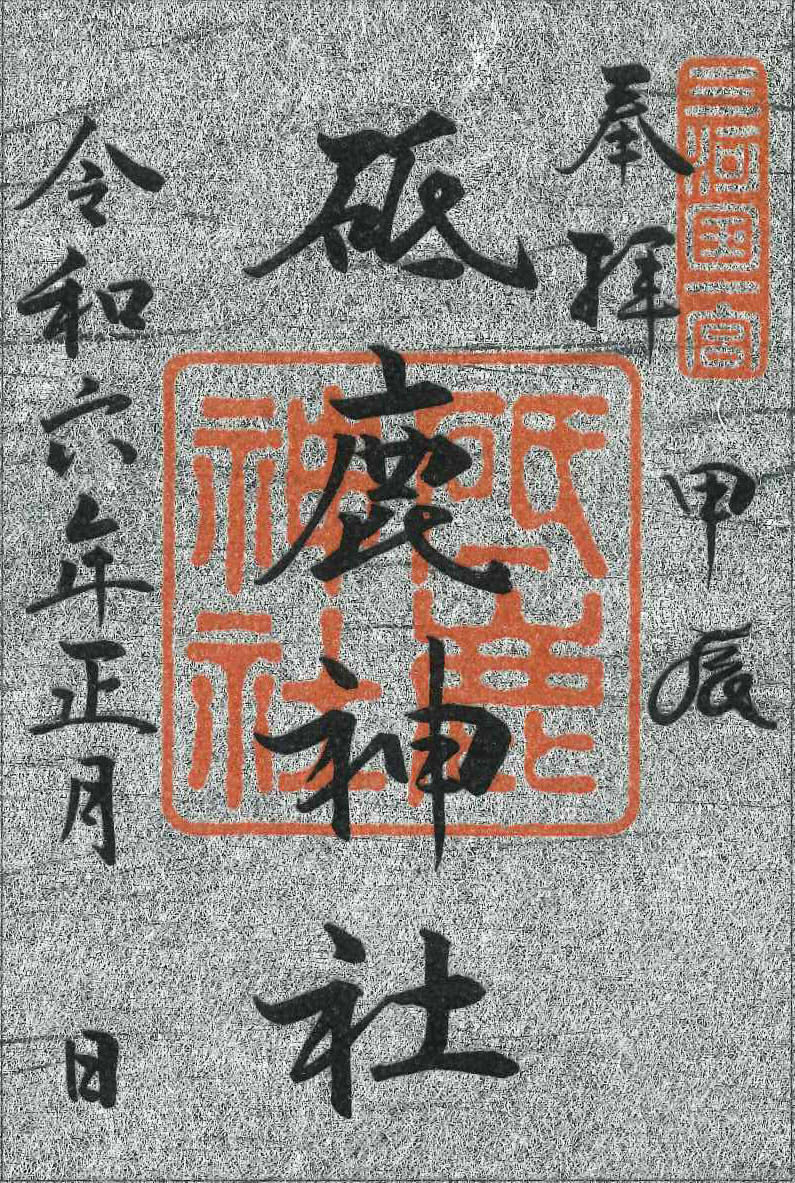 三河国一宮
奉拜
甲辰
砥鹿神社
砥鹿
神社
令和六年正月 日